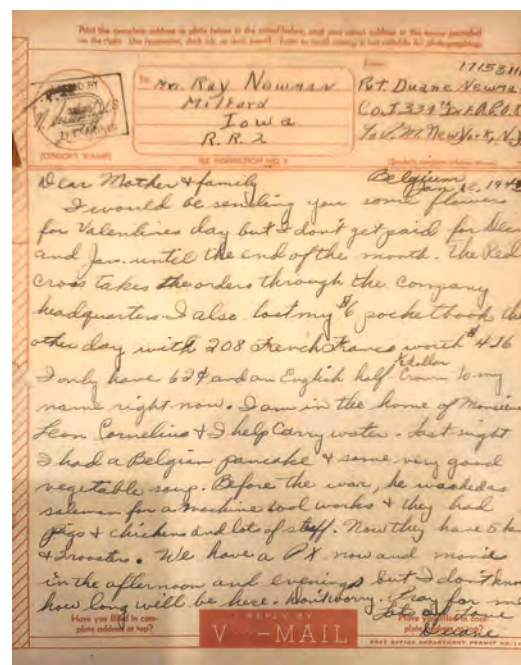 Print the complete address in plain letters in the panel below, and your return address in the space provided
on the right. Use typewriter, dark ink, or dark pencil. Faint or small writing is not suitable for photographing.
To: Mr. Ray Newman
Milford
Iowa
R.R.2
From:
1715311
Pvt. Duane Newma
Co. I 334 Inf A.P.O.
% P.M. New York, N.Y
PASSED BY
(CENSOR'S STAMP)
SEE INSTRUCTION NO. 2
(Sender's complete address above)
Belgium
Jan 194
Dear Mother & family
I would be sending you some flowers
for Valentines day but I don't get paid for Dec
and Jan. until the end of the month. The Red
cross takes the orders through the company
headquarters. I also lost my $6 pocketbook the
other day with 208 French Francs worth $4.16
I only have 62¢ and an English half Crown to my
name right now. I am in the home of Monsieu
Leon Cornelius & I help carry water. Last night
I had a Belgian pancake & some very good
vegetable soup. Before the war, he worked as
salesman for a machine tool works & they had
pigs & chickens and lots of stuff. Now they have 5 he
& 2 roosters. We have a PX now and movie
in the afternoon and evenings but I don't know
how long will be here. Don't worry. Pray for me
Lots of Love
Duane
Have you filled in com-
plete address at top?
REPLY BY
V -MAIL
Have you filled in com-
plete address at top?
POST OFFICE DEPARTMENT PERMIT NO.